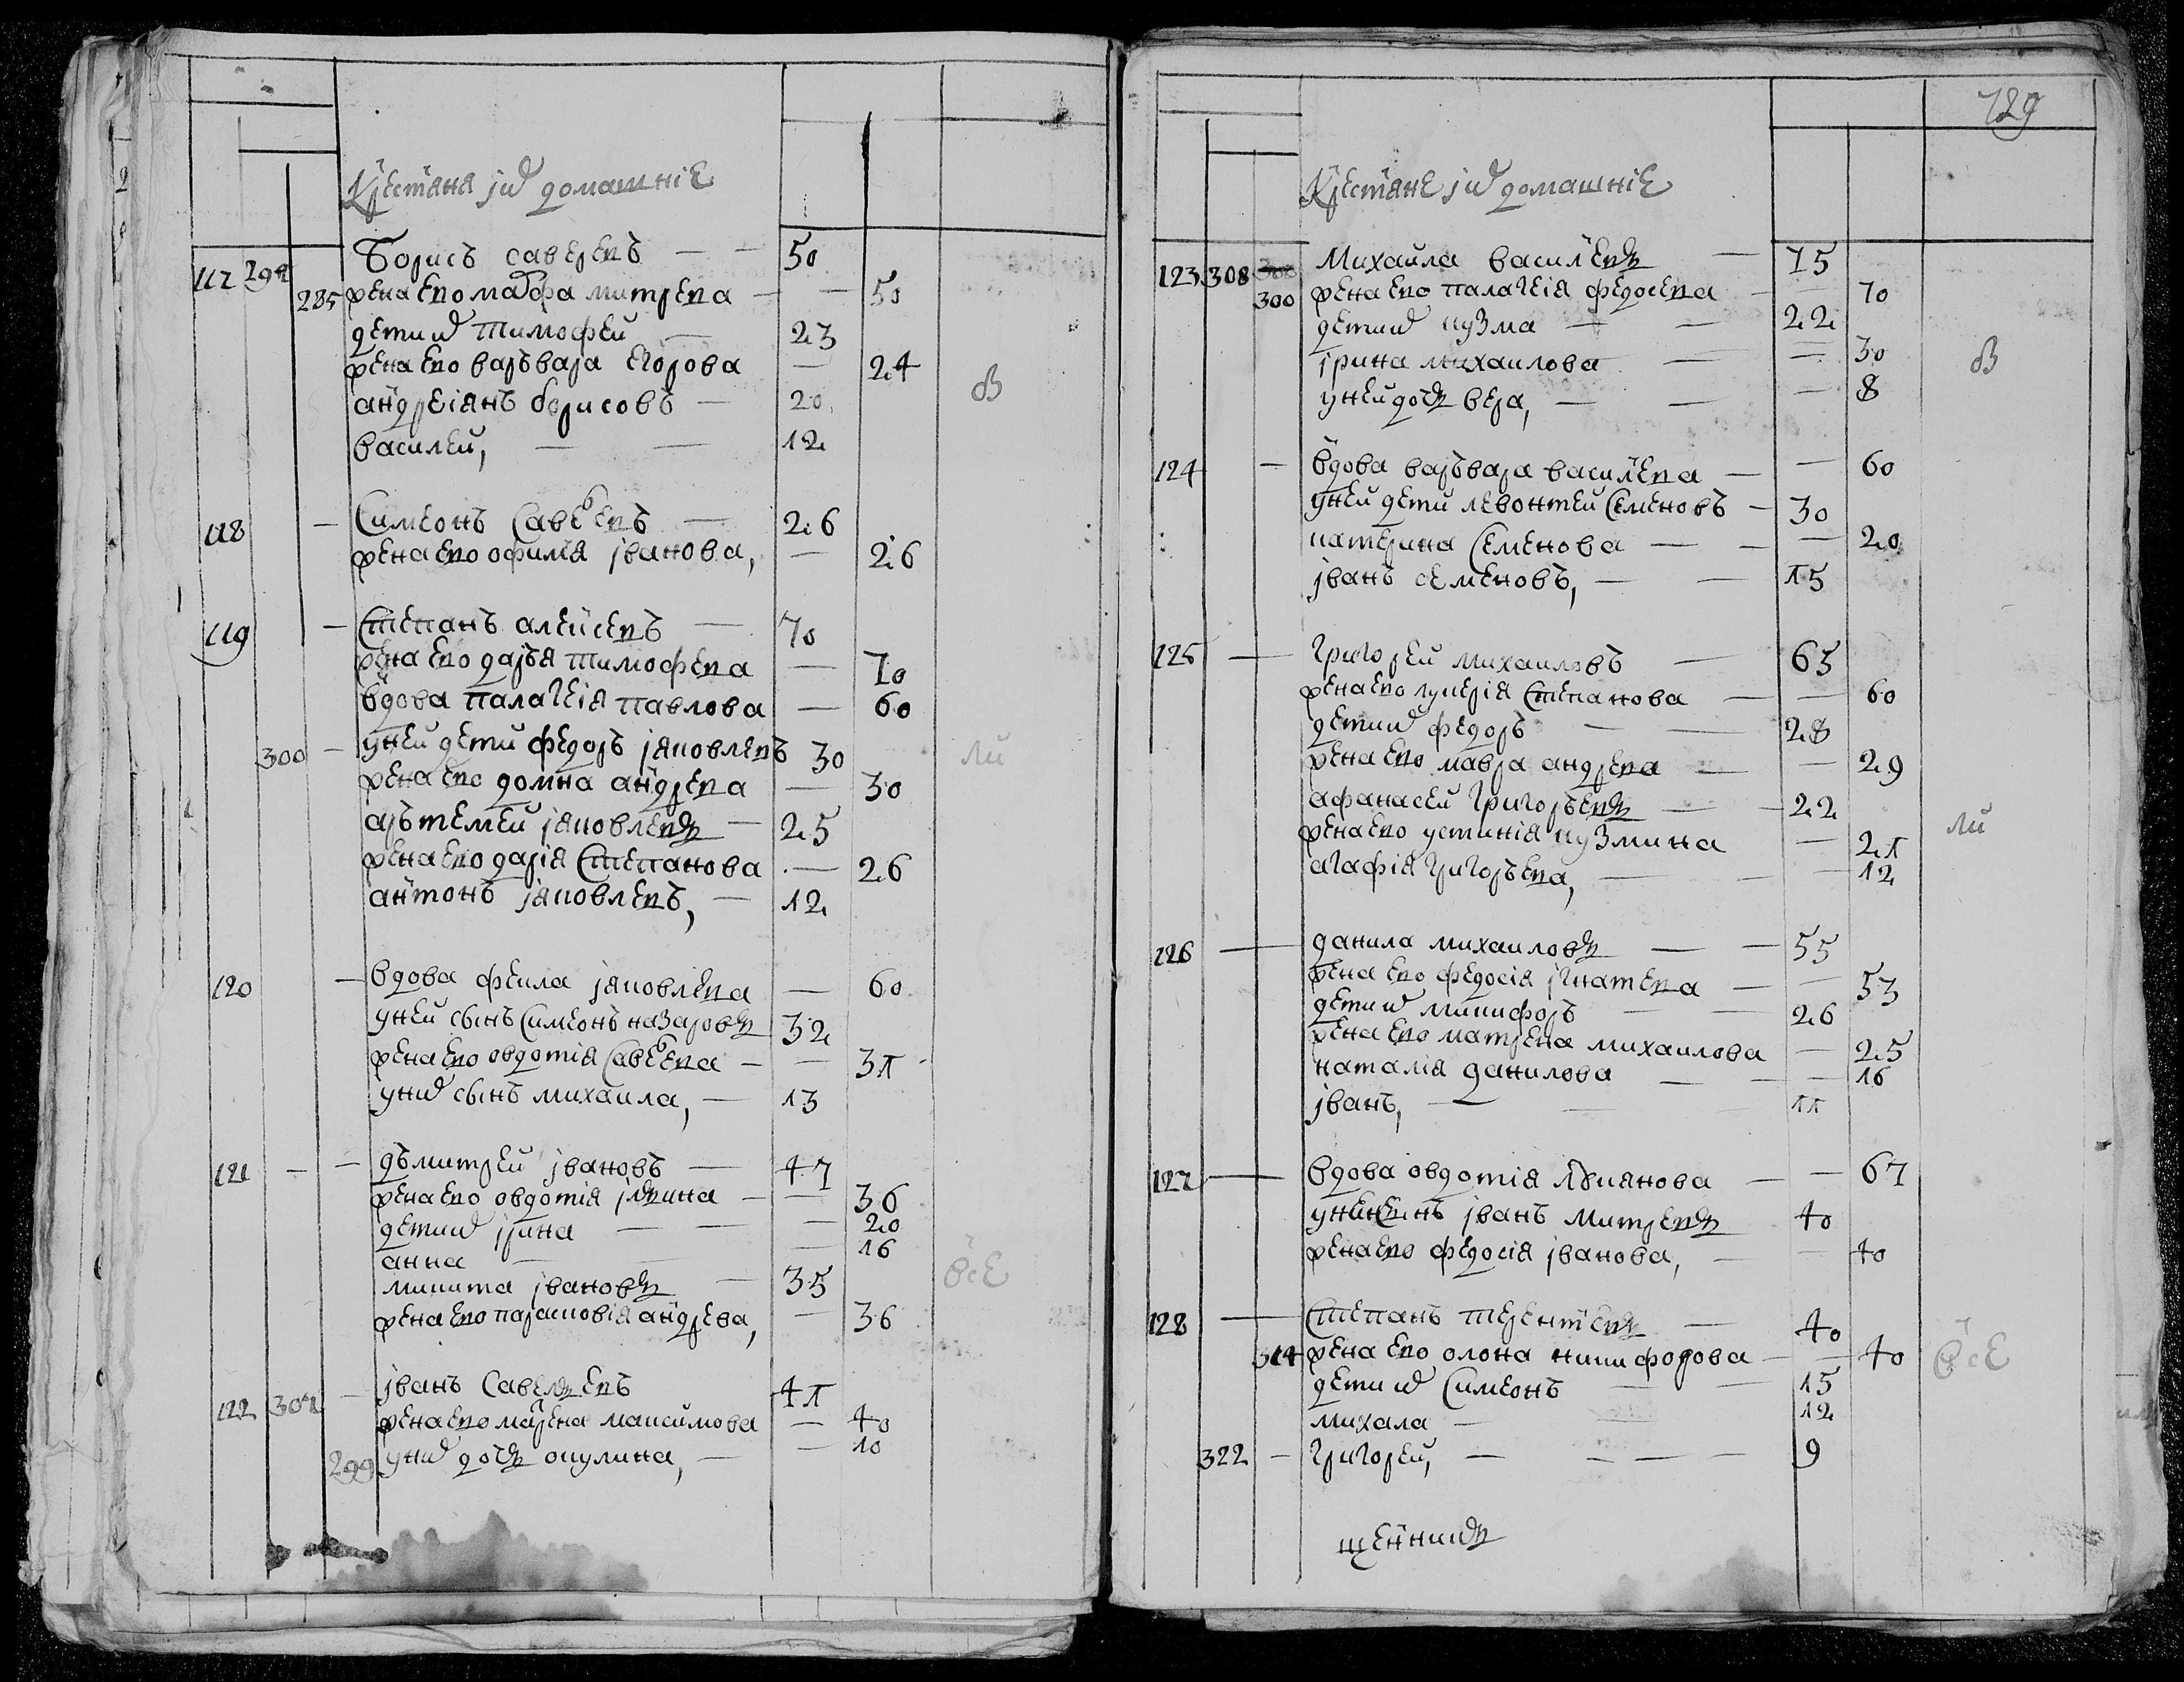 Крестяня и домашніе
117 294 Борисъ савелевъ — 50
285 жена ево марфа митрева — 50
дети их тимофей — 23
жена ево варъвара егорова — 24
андреіянъ борисовъ — 20
василей, — 12
118 — Симеонъ Савелевъ — 26
жена ево офимія іванова, — 26
119 — Степанъ алексеевъ — 70
жена ево даръя тимофева — 70
вдова палагеія павлова — 60
300 — у ней дети федоръ іяковлевъ 30
жена ево домна андрева — 30
арътемей іяковлевъ — 25
жена ево дарія Степанова — 26
антонъ іяковлевъ, — 12
120 — вдова фекла іяковлева — 60
у ней сынъ Симеонъ назаровъ 32
жена ево овдотія Савелева — 31
у них сынъ михаила, — 13
121 — — дъмитрей івановъ — 47
жена ево овдотія — 36
дети их ірина — 20
анна — 16
микита івановъ — 35
жена ево парасковія андрева, — 36
122 302 — іванъ Савельевъ 41
жена ево марена максимова — 40
299 у них дочь окулина, — 10
в
ли
все
129
Крестяне и домашніе
123 308 300 Михаила василевъ — 75
300 жена ево палагеія федосева — 70
дети их кузма — 22
ірина михаилова — 30
у ней дочь вера, — 8
124 — вдова варъвара василева — 60
у ней дети левонтей Семеновъ — 30
катерина Семенова — 20
іванъ семеновъ, — 15
125 — григорей михаиловъ — 65
жена ево лукерія Степанова — 60
дети их федоръ — 28
жена ево мавра андрева — 29
афанасей григоръевъ — 22
жена ево устинія кузмина — 21
агафія григоръева, — 12
126 — данила михаиловъ — 55
жена ево федосія ігнатева — 53
дети их микифоръ — 26
жена ево матрена михаилова — 25
наталія данилова — 16
іванъ, — 11
127 — вдова овдотія — 67
у ней сынъ іванъ митревъ 40
жена ево федосія іванова, — 40
128 — Степанъ терентевъ — 40
314 жена ево олона никифорова — 40
дети их Симеонъ — 15
михала — 12
322 — григорей, — 9
в
ли
все
щенникъ